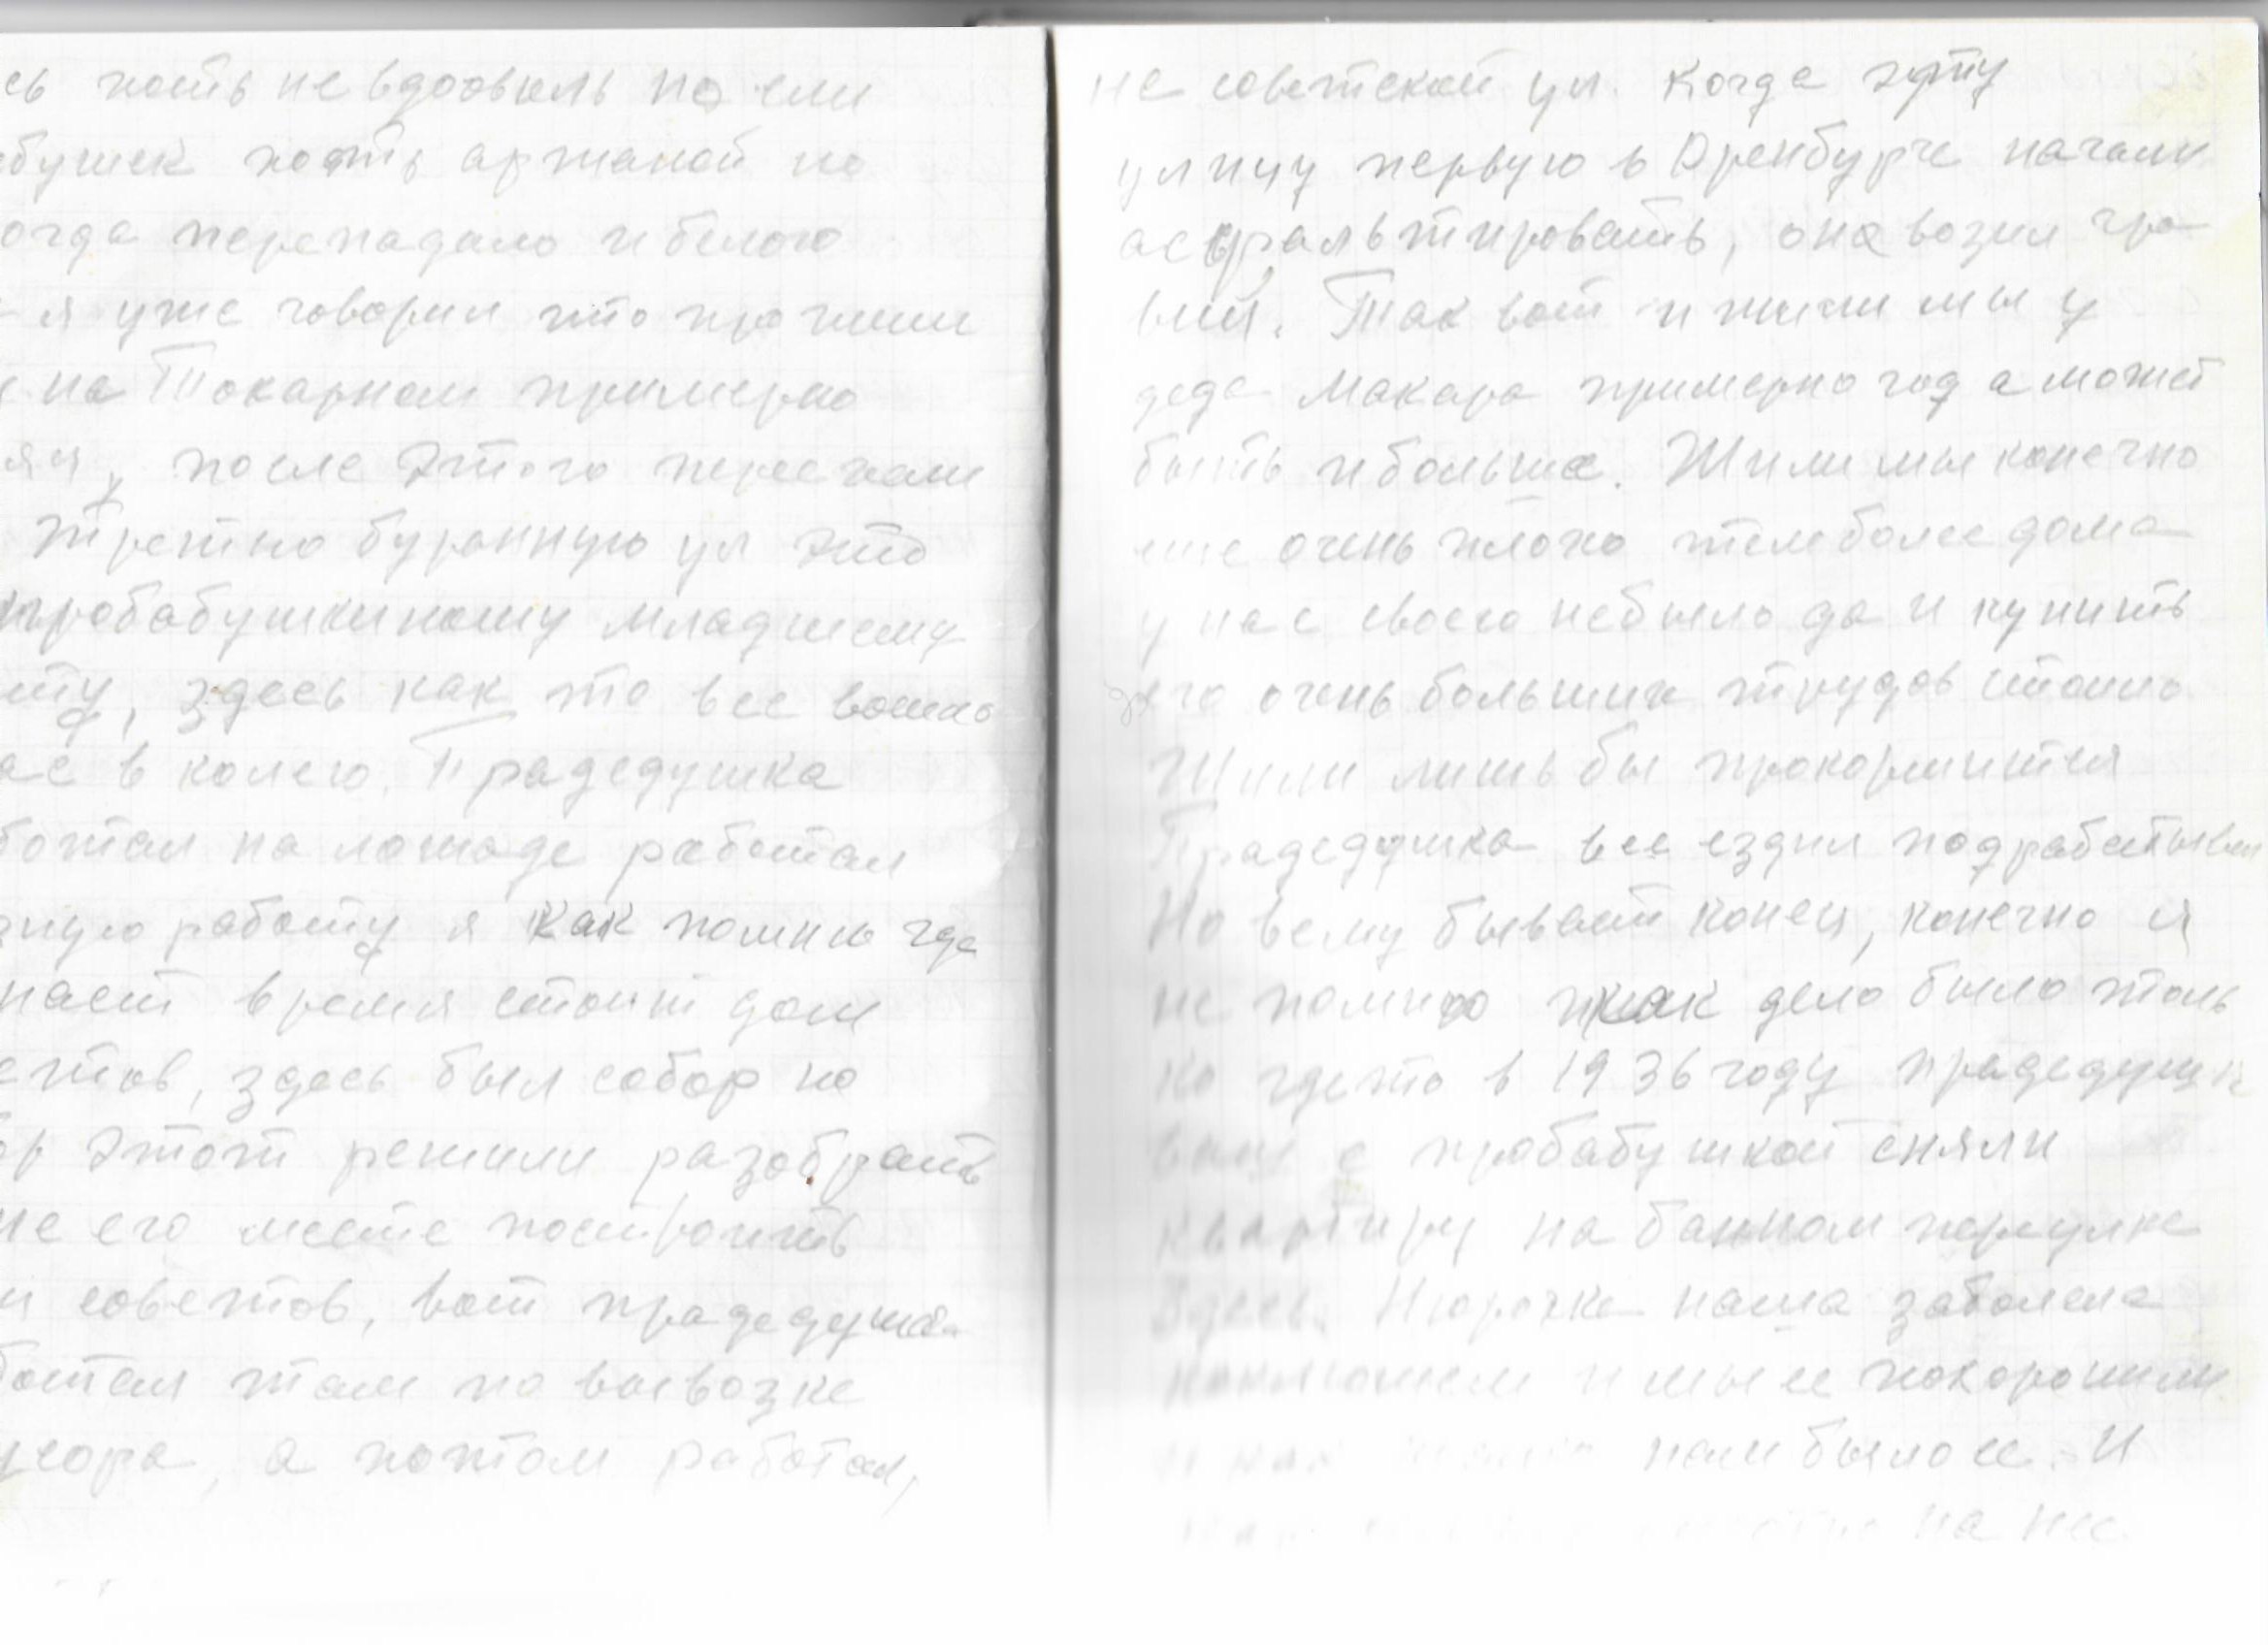 сь хоть не вдоволь но ели
бушек хоть аржаной но
огда перепадало и белого
я уже говорил что прожили
на Токарном примерно
после этого переехали
третью буранную ул это
прабабушкиному младшему
здесь как то все вошло
ас в колею. Прадедушка
ботал на лошаде работал
зную работу я как помню где
наст время стоит дом
етов, здесь был собор но
ор этот решили разобрать
не его месте построить
и советов, вот прадедушка
ботал там по вывозке
усора, а потом работал,
не советской ул. Когда эту
улицу первую в Оренбурге начали
асфральтировать, она возил гра
вий. Так вот и жили мы у
деда Макара примерно год а может
быть и больше. Жили мы конечно
очень плохо тем более дома
у нас своего небыло да и купить
его очень больших трудов стоило
Жили лишь бы прокормится
Прадедушка все ездил подрабатывал
Но вему бывает конец, конечно я
не помню как дело было толь
ко гдето в 1936 году прадедушк
ваш с прабабушкой сняли
квартиру на банном переулке
Здесь Нюрочка наша заболела
коклюшем и мы ее похоронили
и как нам было ее. И
на нее